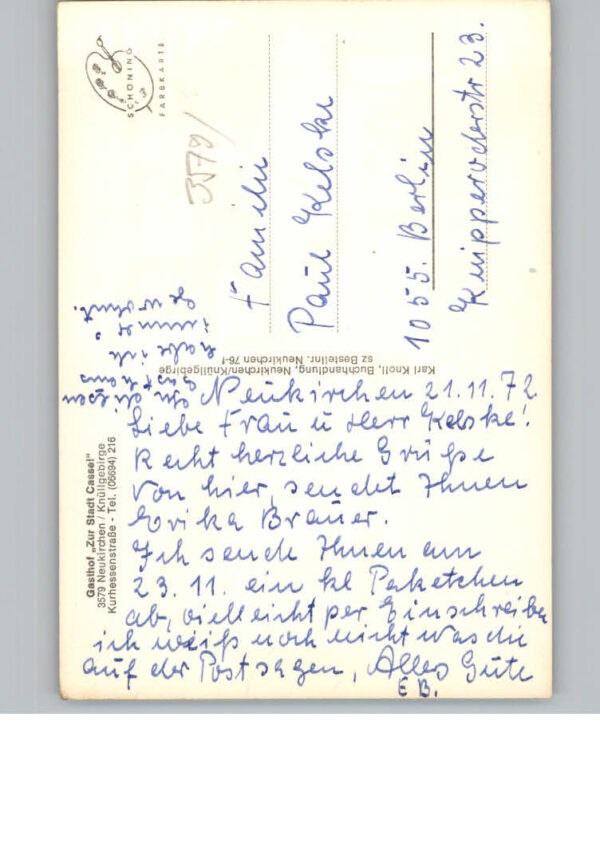 Gasthof „Zur Stadt Cassel"
3579 Neukirchen / Knüllgebirge
Kurhessenstraße - Tel. (06694) 216
Neukirchen 21.11.72
Liebe Frau u Herr Kelske!
Recht herzliche Grüße
von hier, sendet Ihnen
Erika Brauer.
Ich sende Ihnen am
23.11. ein kl Paketchen
ab, vielleicht per Einschreiben
ich weiß noch nicht was die
auf der Post sagen, Alles Gute
E B.
In diesem
Gasthaus
habe ich
immer
gewohnt.
Karl Knoll, Buchhandlung, Neukirchen/Knüllgebirge
sz Bestellnr. Neukirchen 76-f
SCHÖNING
FARBKARTE
3579/
Familie
Paul Kelske
1055. Berlin
Kniproderstr 23.